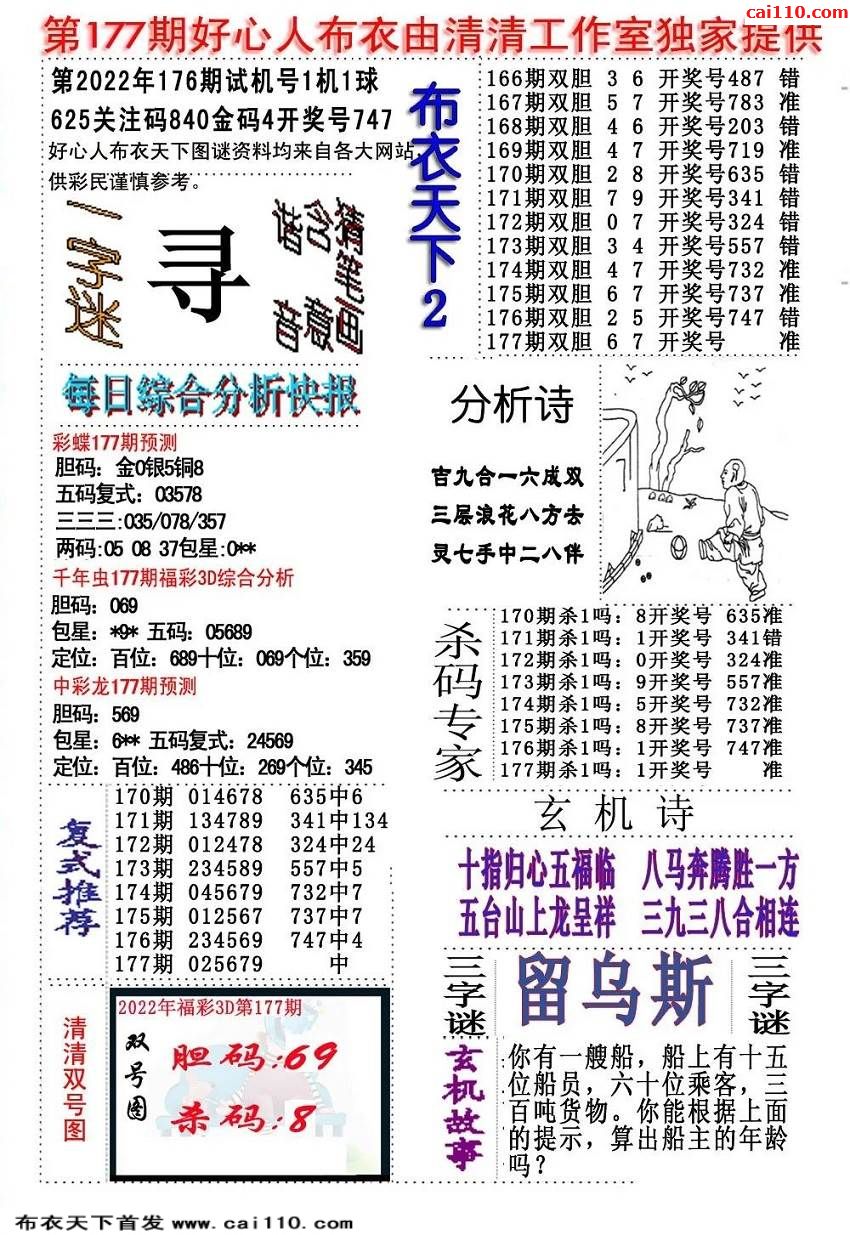 cai110.com
第177期好心人布衣由清清工作室独家提供
第2022年176期试机号1机1球
625关注码840金码4开奖号747
好心人布衣天下图谜资料均来自各大网站,
供彩民谨慎参考。
一字迷
寻
猜笔画
含意
谐音
布衣天下2
166期双胆 3 6 开奖号487 错
167期双胆 5 7 开奖号783 准
168期双胆 4 6 开奖号203 错
169期双胆 4 7 开奖号719 准
170期双胆 2 8 开奖号635 错
171期双胆 7 9 开奖号341 错
172期双胆 0 7 开奖号324 错
173期双胆 3 4 开奖号557 错
174期双胆 4 7 开奖号732 准
175期双胆 6 7 开奖号737 准
176期双胆 2 5 开奖号747 错
177期双胆 6 7 开奖号 准
每日综合分析快报
彩蝶177期预测
胆码：金0银5铜8
五码复式：03578
三三三:035/078/357
两码:05 08 37包星:0**
千年虫177期福彩3D综合分析
胆码：069
包星：*9* 五码：05689
定位：百位：689十位：069个位：359
中彩龙177期预测
胆码：569
包星：6** 五码复式：24569
定位：百位：486十位：269个位：345
分析诗
吉九合一六成双
三层浪花八方去
灵七手中二八伴
杀码专家
170期杀1吗：8开奖号 635准
171期杀1吗：1开奖号 341错
172期杀1吗：0开奖号 324准
173期杀1吗：9开奖号 557准
174期杀1吗：5开奖号 732准
175期杀1吗：8开奖号 737准
176期杀1吗：1开奖号 747准
177期杀1吗：1开奖号 准
复式推荐
170期 014678 635中6
171期 134789 341中134
172期 012478 324中24
173期 234589 557中5
174期 045679 732中7
175期 012567 737中7
176期 234569 747中4
177期 025679 中
玄机诗
十指归心五福临 八马奔腾胜一方
五台山上龙呈祥 三九三八合相连
三字谜
留乌斯
三字谜
清清双号图
2022年福彩3D第177期
双号图
胆码:69
杀码:8
玄机故事
你有一艘船，船上有十五
位船员，六十位乘客，三
百吨货物。你能根据上面
的提示，算出船主的年龄
吗？
布衣天下首发 www.cai110.com